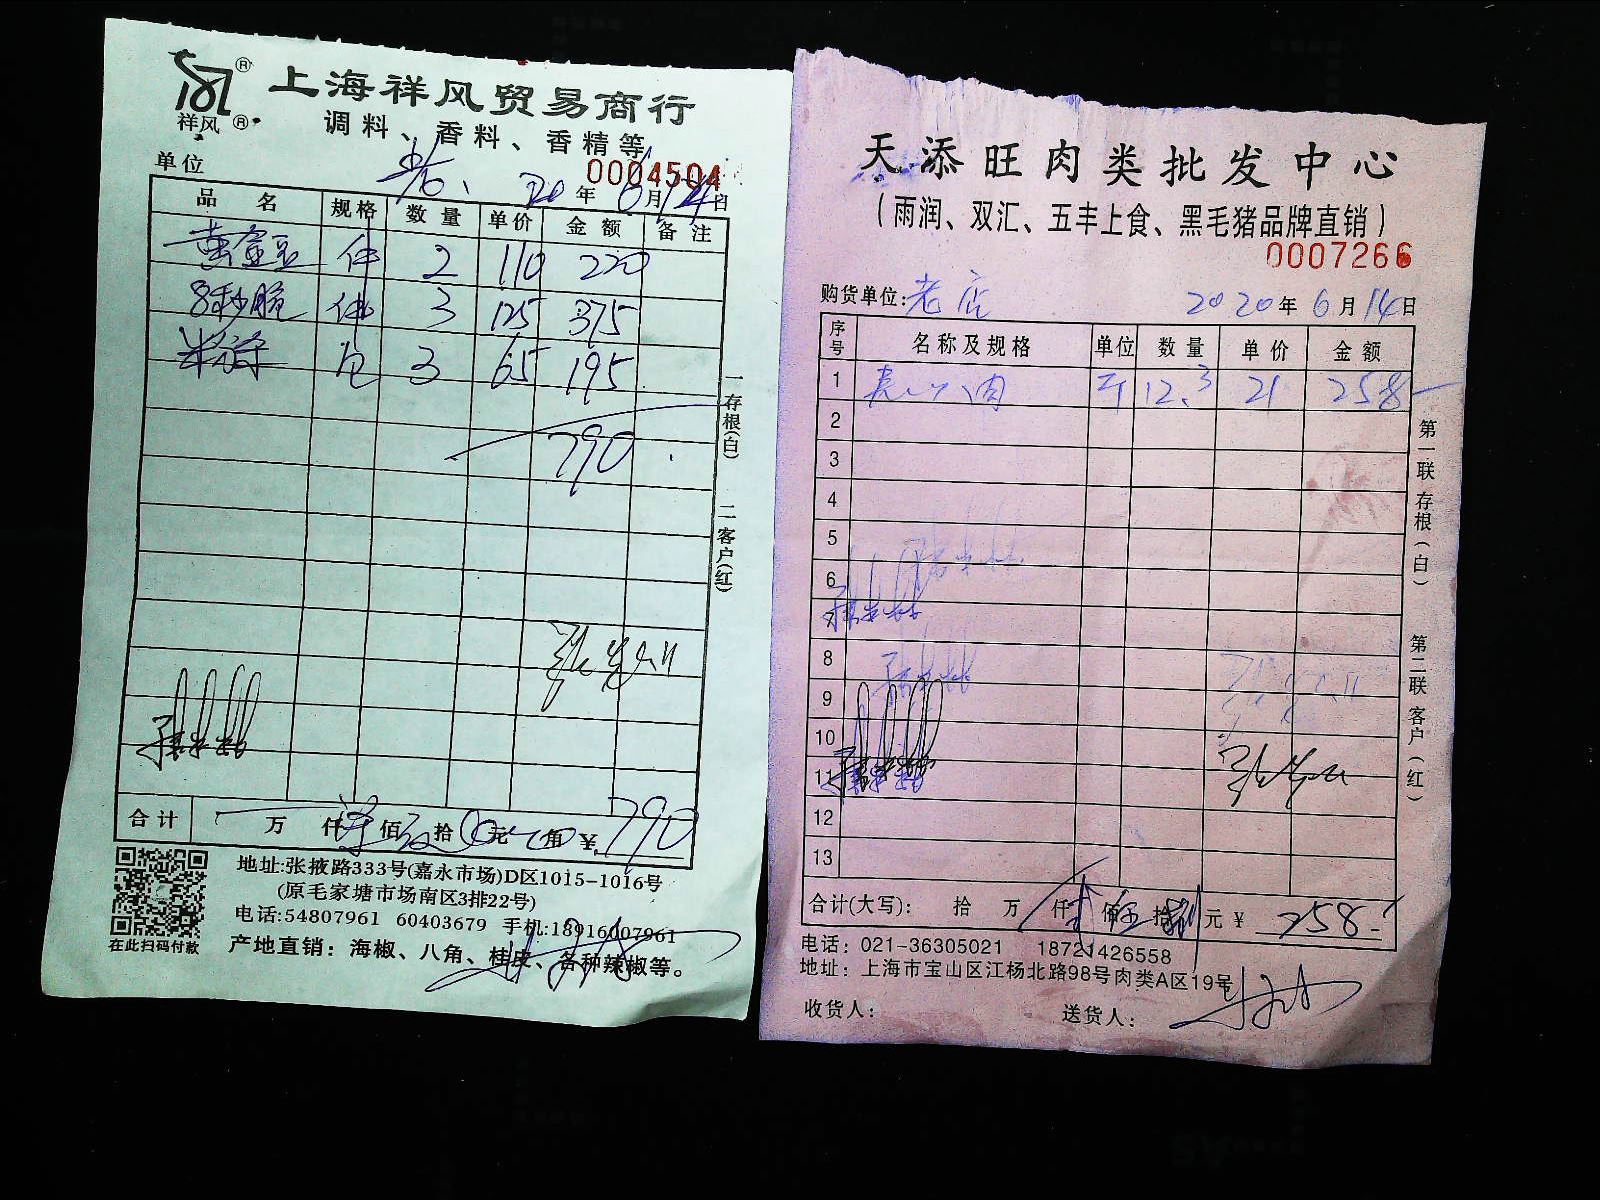 上海祥风贸易商行
祥风
调料、香料、香精等
0004504
单位 老 20年6月14日
品名 规格 数量 单价 金额 备注
黄金豆 件 2 110 220
8秒脆 件 3 125 375
包 3 65 195
790
一存根(白) 二客户(红)
合计 万 仟 佰 拾 元 角 ¥ 790
地址:张掖路333号(嘉永市场)D区1015-1016号
(原毛家塘市场南区3排22号)
电话:54807961 60403679 手机:18916007961
在此扫码付款
产地直销：海椒、八角、桂皮、各种辣椒等。
天添旺肉类批发中心
（雨润、双汇、五丰上食、黑毛猪品牌直销）
0007266
购货单位:老店 2020年6月14日
序号 名称及规格 单位 数量 单价 金额
1 肉 斤 12.3 21 258
2
3
4
5
6
7
8
9
10
11
12
13
第一联存根（白） 第二联客户（红）
合计(大写): 拾 万 仟 佰 拾 元 ¥ 258
电话：021-36305021 18721426558
地址：上海市宝山区江杨北路98号肉类A区19号
收货人： 送货人：